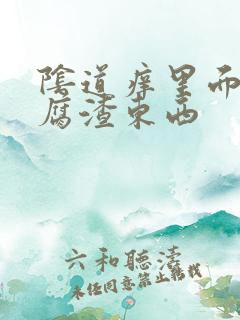 陰道痒里而
腐渣東西
六和聽濤
未经同意禁止转载